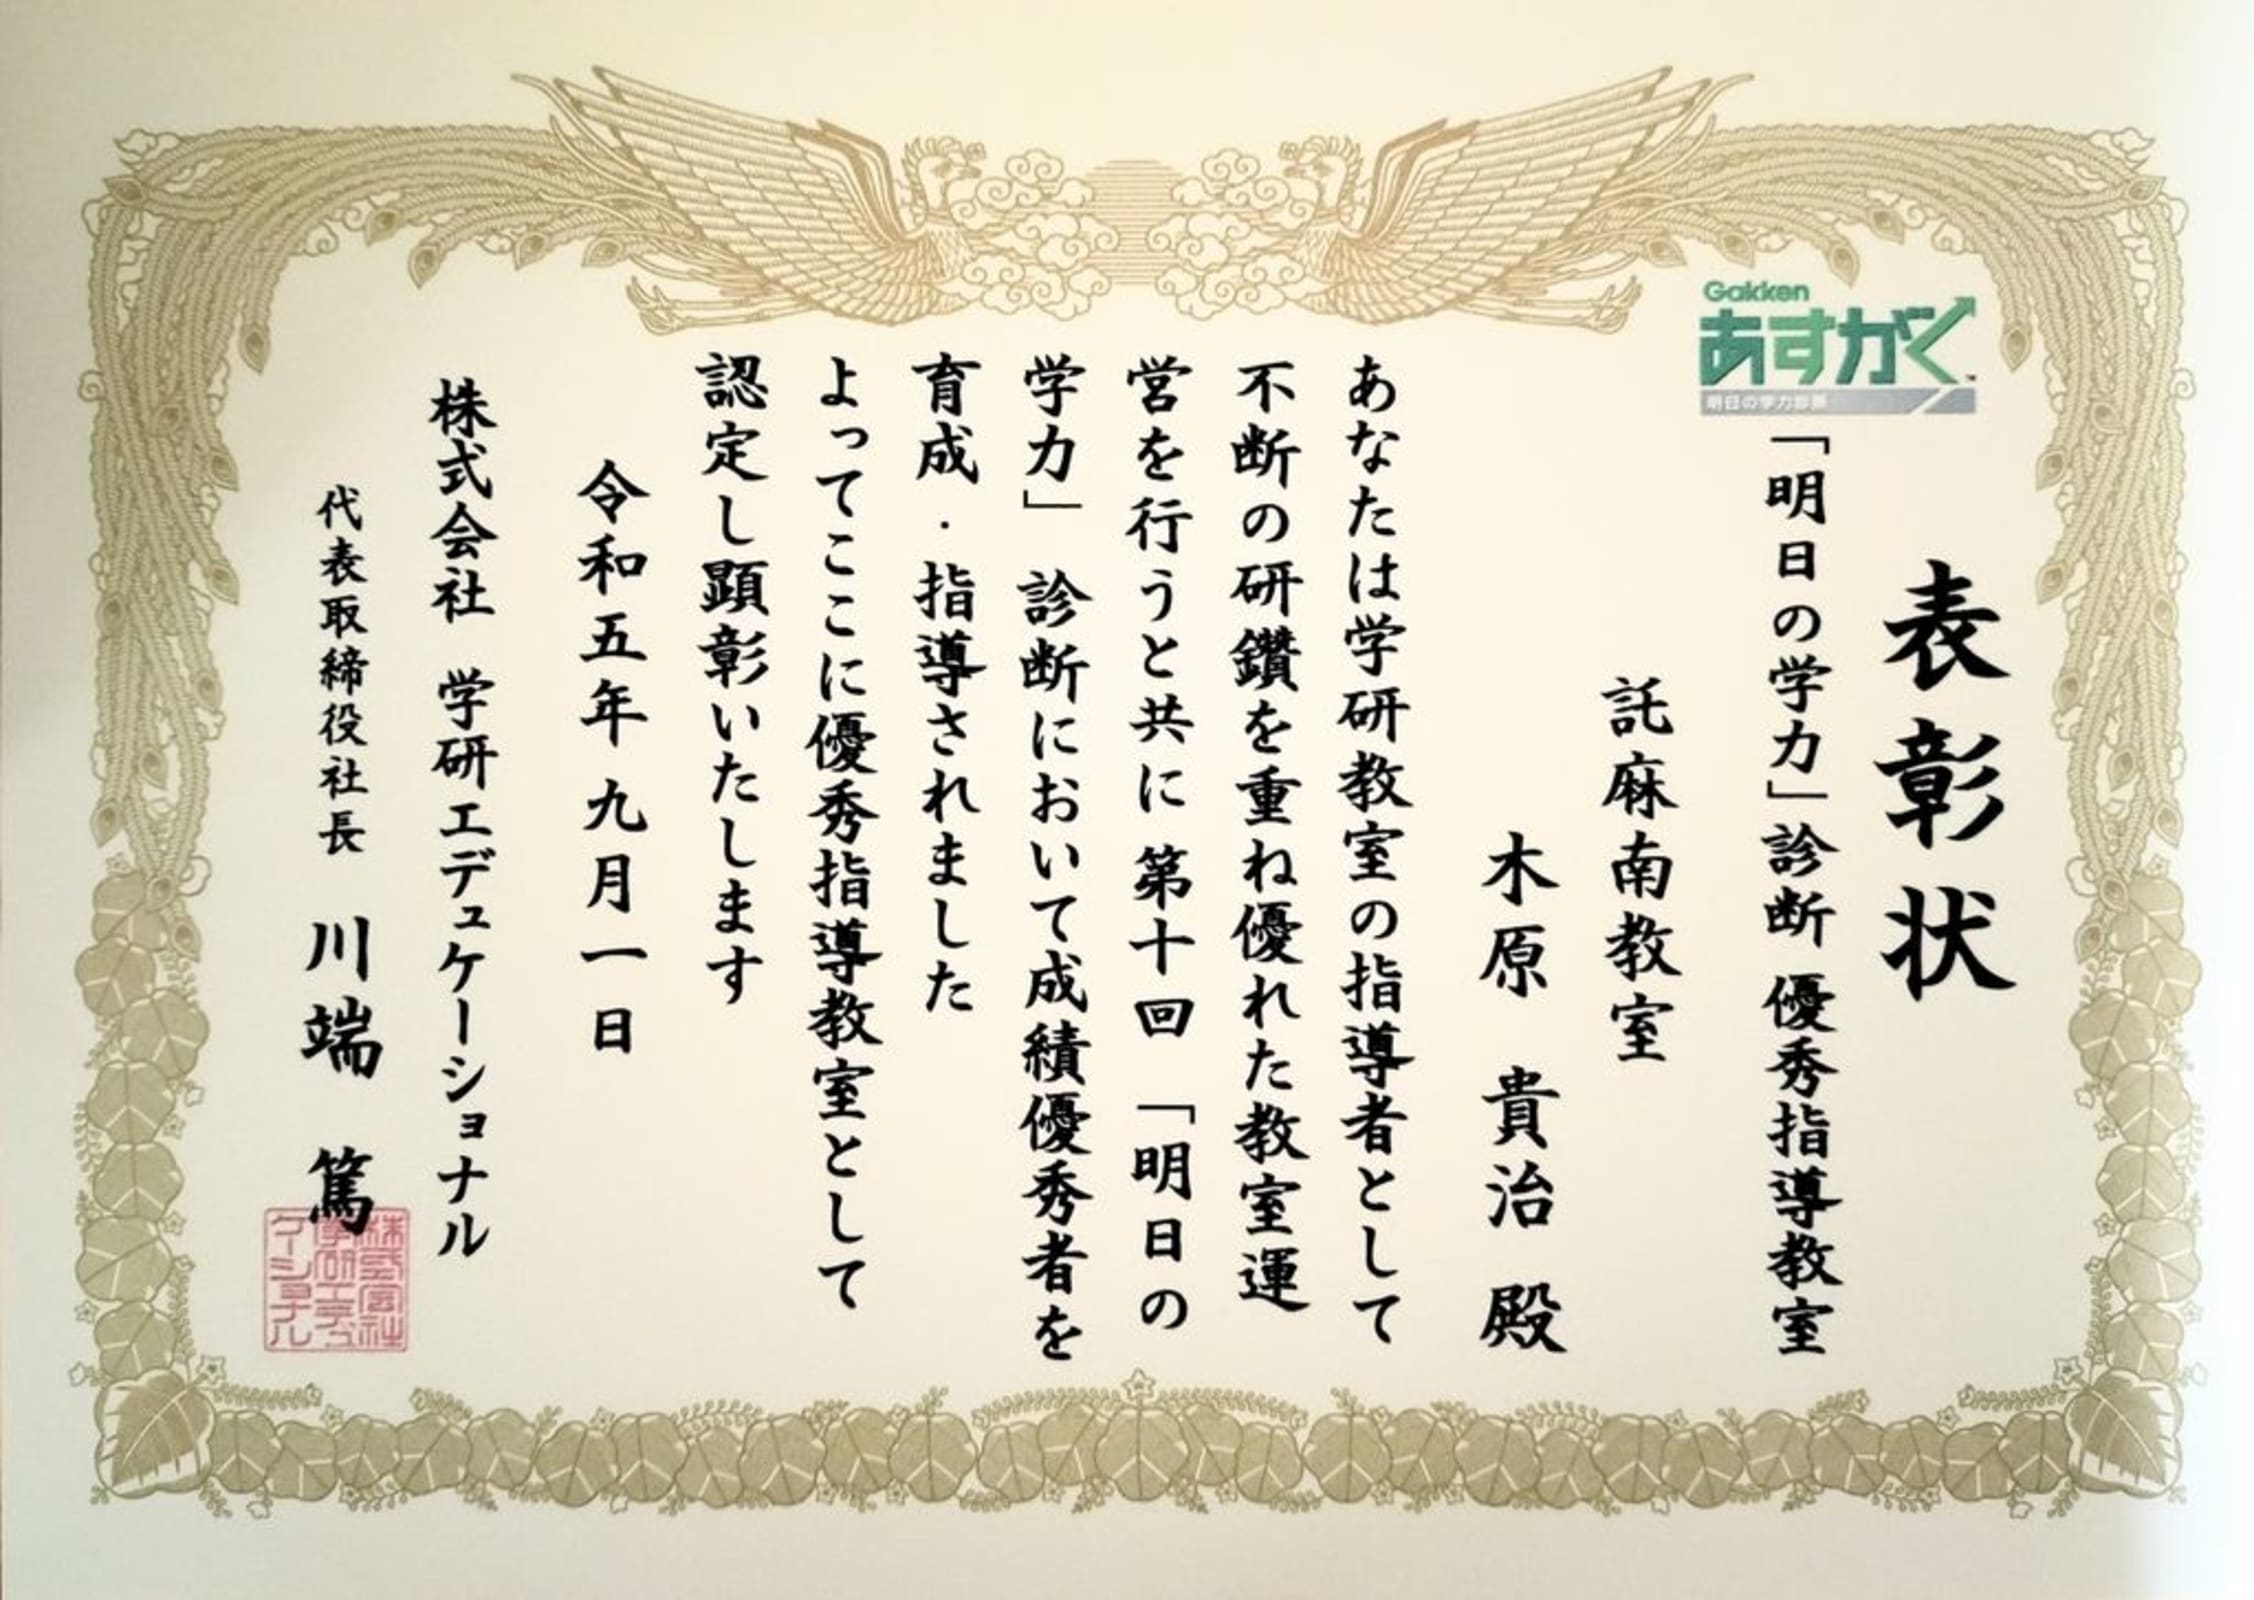 表彰状
Gakken
あすがく
明日の学力診断
「明日の学力」診断 優秀指導教室
託麻南教室
木原 貴治 殿
あなたは学研教室の指導者として
不断の研鑽を重ね優れた教室運
営を行うと共に 第十回 「明日の
学力」 診断において成績優秀者を
育成・指導されました
よってここに優秀指導教室として
認定し顕彰いたします
令和五年九月一日
株式会社 学研エデュケーショナル
代表取締役社長 川端 篤
株式会社
学研エデュ
ケーショナル